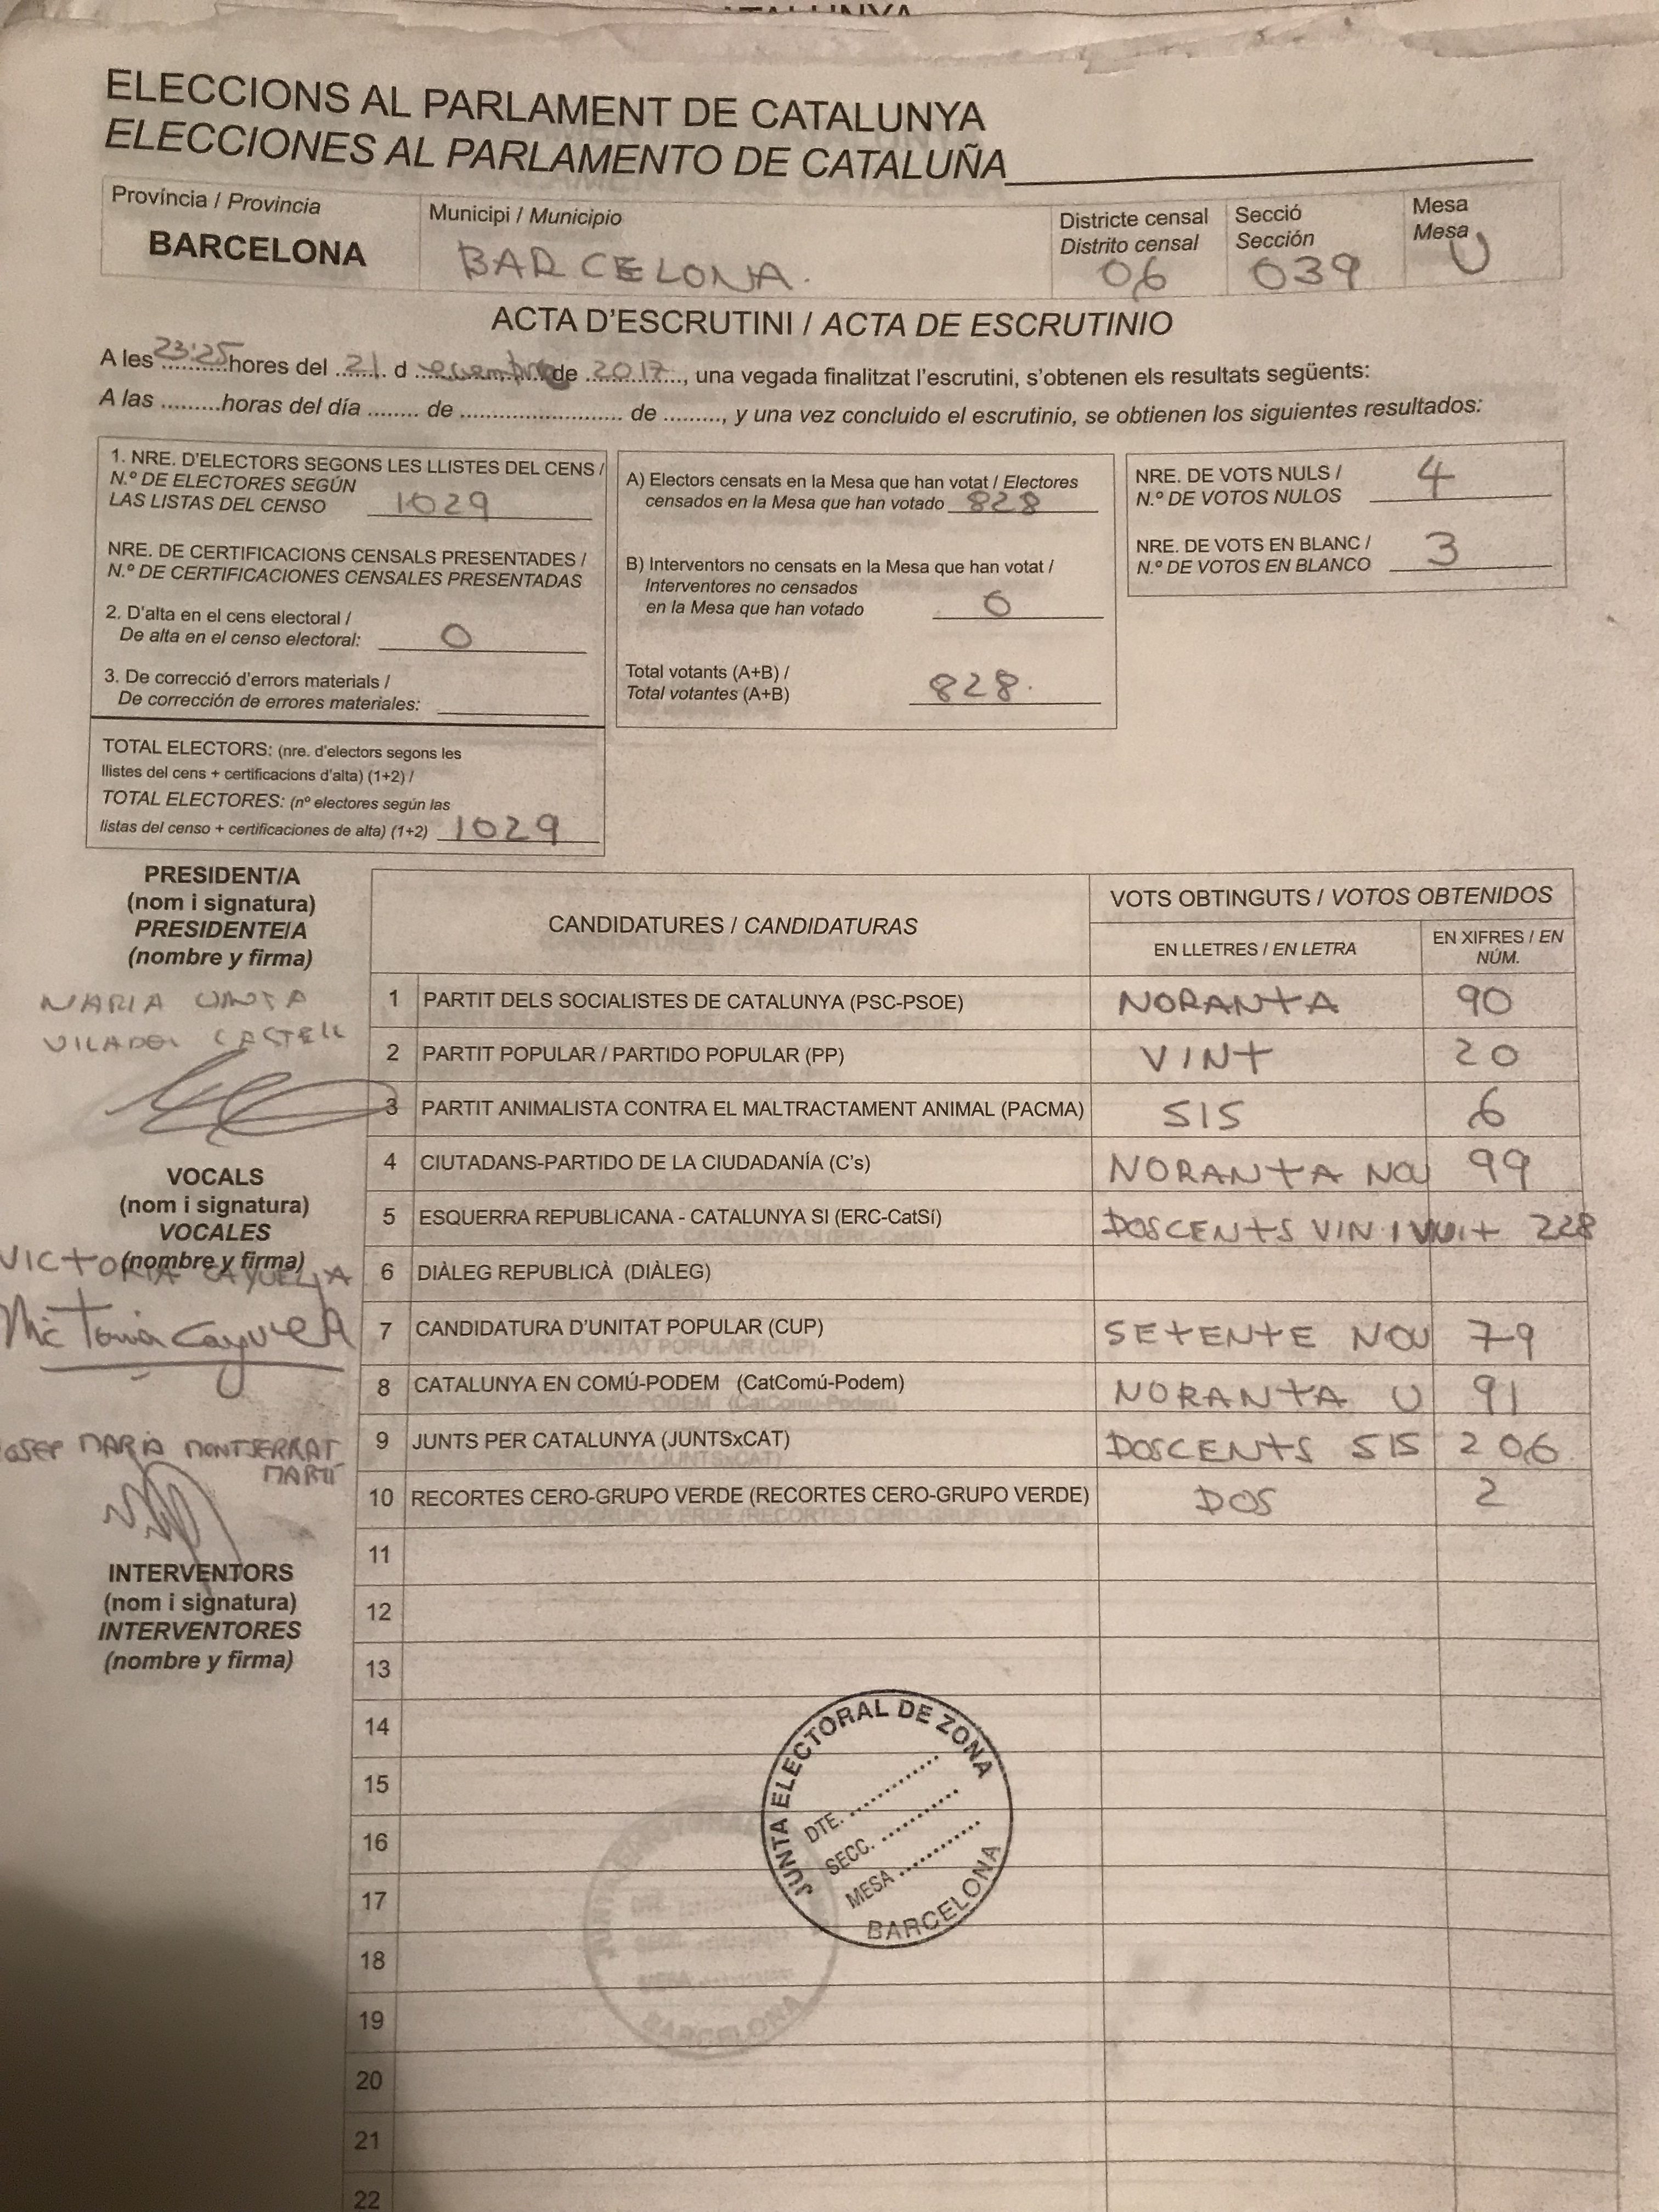 ELECCIONS AL PARLAMENT DE CATALUNYA
ELECCIONES AL PARLAMENTO DE CATALUÑA
Província / Provincia
BARCELONA
Municipi / Municipio
BARCELONA.
Districte censal
Distrito censal
06
Secció
Sección
039
Mesa
Mesa
U
ACTA D'ESCRUTINI / ACTA DE ESCRUTINIO
A les 23:25 hores del 21 d de 2017, una vegada finalitzat l'escrutini, s'obtenen els resultats següents:
A las .........horas del día ........ de .......................... de ........., y una vez concluido el escrutinio, se obtienen los siguientes resultados:
1. NRE. D'ELECTORS SEGONS LES LLISTES DEL CENS /
N.º DE ELECTORES SEGÚN
LAS LISTAS DEL CENSO 1029
NRE. DE CERTIFICACIONS CENSALS PRESENTADES /
N.º DE CERTIFICACIONES CENSALES PRESENTADAS
2. D'alta en el cens electoral /
De alta en el censo electoral: 0
3. De correcció d'errors materials /
De corrección de errores materiales:
TOTAL ELECTORS: (nre. d'electors segons les
llistes del cens + certificacions d'alta) (1+2) /
TOTAL ELECTORES: (nº electores según las
listas del censo + certificaciones de alta) (1+2) 1029
A) Electors censats en la Mesa que han votat / Electores
censados en la Mesa que han votado 828
B) Interventors no censats en la Mesa que han votat /
Interventores no censados
en la Mesa que han votado 0
Total votants (A+B) /
Total votantes (A+B) 828.
NRE. DE VOTS NULS /
N.º DE VOTOS NULOS 4
NRE. DE VOTS EN BLANC /
N.º DE VOTOS EN BLANCO 3
PRESIDENT/A
(nom i signatura)
PRESIDENTE/A
(nombre y firma)
MARIA
CASTELL
VOCALS
(nom i signatura)
VOCALES
(nombre y firma)
VICTORIA CAYUELA
Victoria Cayuela
JOSEP MARIA MONTSERRAT
MARTÍ
INTERVENTORS
(nom i signatura)
INTERVENTORES
(nombre y firma)
CANDIDATURES / CANDIDATURAS
VOTS OBTINGUTS / VOTOS OBTENIDOS
EN LLETRES / EN LETRA
EN XIFRES / EN
NÚM.
1 PARTIT DELS SOCIALISTES DE CATALUNYA (PSC-PSOE) NORANTA 90
2 PARTIT POPULAR / PARTIDO POPULAR (PP) VINT 20
3 PARTIT ANIMALISTA CONTRA EL MALTRACTAMENT ANIMAL (PACMA) SIS 6
4 CIUTADANS-PARTIDO DE LA CIUDADANÍA (C's) NORANTA NOU 99
5 ESQUERRA REPUBLICANA - CATALUNYA SI (ERC-CatSí) DOSCENTS VIN I VUIT 228
6 DIÀLEG REPUBLICÀ (DIÀLEG)
7 CANDIDATURA D'UNITAT POPULAR (CUP) SETENTE NOU 79
8 CATALUNYA EN COMÚ-PODEM (CatComú-Podem) NORANTA U 91
9 JUNTS PER CATALUNYA (JUNTSxCAT) DOSCENTS SIS 206
10 RECORTES CERO-GRUPO VERDE (RECORTES CERO-GRUPO VERDE) DOS 2
11
12
13
14
15
16
17
18
19
20
21
22
JUNTA ELECTORAL DE ZONA
DTE. ................
SECC. ..............
MESA ..............
BARCELONA